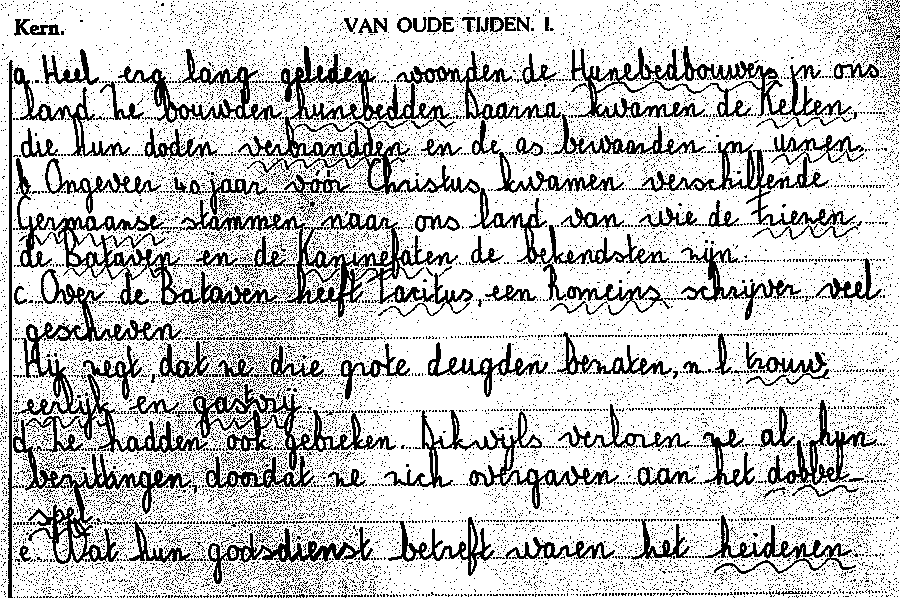 Kern. VAN OUDE TIJDEN. I.
a. Heel erg lang geleden woonden de Hunebedbouwers in ons
land Ze bouwden hunebedden Daarna kwamen de Kelten,
die hun doden verbrandden en de as bewaarden in urnen.
b Ongeveer 40 jaar vóór Christus kwamen verschillende
Germaanse stammen naar ons land van wie de Friezen,
de Bataven en de Kaninefaten de bekendsten zijn.
c. Over de Bataven heeft Tacitus, een Romeins schrijver veel
geschreven
Hij zegt, dat ze drie grote deugden bezaten, n.l. trouw,
eerlijk en gastvrij
d Ze hadden ook gebreken. Dikwijls verloren ze al hun
bezittingen, doordat ze zich overgaven aan het dobbel-
spel.
e. Wat hun godsdienst betreft waren het heidenen.